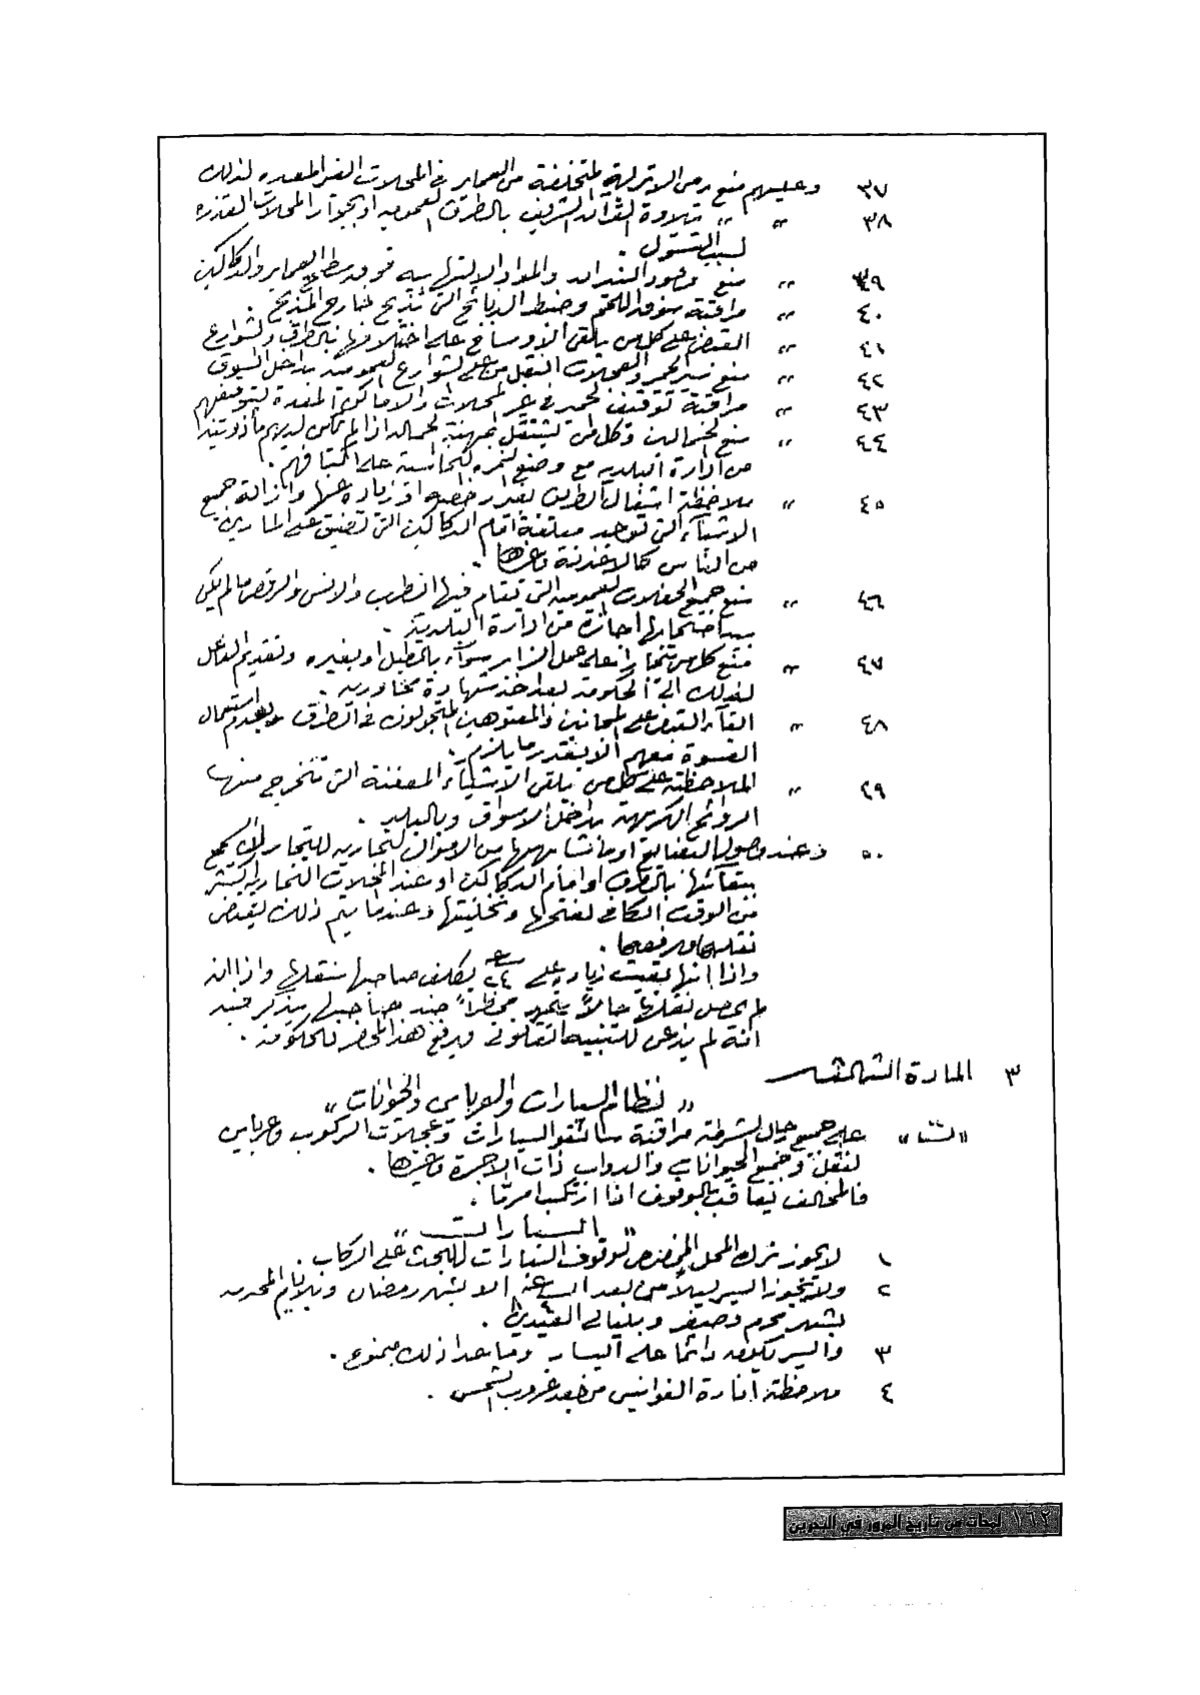 ٣٧ وعليهم منع رمي الاتربة المتخلفة من العماير في المحلات الغير المعده لذلك
٣٨ " " تلاوة القرآن الشريف بالطرق العموميه او بجوار المحلات القذره
لسبب التسول .
٣٩ " منع وضع والمواد الالتهابيه فوق سطح العماير والدكاكين
٤٠ " مراقبة سوق اللحم وضبط الذبائح التي تذبح خارج المذبح .
٤١ " القبض على كل من يلقي الاوساخ على اختلافها بالطرق والشوارع
٤٢ " منع سير الحمير وعجلات النقل من على الشوارع العموميه بداخل السوق
٤٣ " مراقبة توقيف الحمير في غير المحلات والاماكن المعدة لتوقيفهم
٤٤ " منع الحمالين وكل من يشتغل بمهنة الحماله اذا لم يكن لديهم مأذونية
من ادارة البلديه مع وضع النمره النحاسية على اكتافهم .
٤٥ " ملاحظة اشغال الطريق بغير رخصه او زيادة عنها وازالة جميع
الاشيآء التي توجد معلقة امام الدكاكين التي تضيق على المارين
من الناس كالاخذنة وغيرها .
٤٦ " منع جميع الحفلات العموميه التي تقام فيها الطرب والانس والرقص ما لم يكن
بيد اصحابها اجازة من ادارة البلدية .
٤٧ " منع كل من على عمل الزار سوآء بالطبل او بغيره وتقديم الفاعل
لذلك الى الحكومة بعد اخذ شهادة مجاوريه .
٤٨ " القآء القبض على المجانين والمعتوهين المتجولون في الطرق وعدم استعمال
القسوة معهم الا بقدر ما يلزم .
٤٩ " الملاحظة على كل من يلقي الاشياء المعفنة التي تخرج منها
الروائح الكريهة بداخل الاسواق وبالبلد .
٥٠ وعند وصول البضائع او ما شابهها من الاموال التجاريه للتجار
بقآئها بالطرق او امام الدكاكين او عند المحلات التجاريه اكثر
من الوقت الكافي لفتحها وتخليتها وعندما يتم ذلك
نقلها ورفعها .
واذا انها بقيت زيادة على ٢٤ ساعه يكلف صاحبها بنقلها واذا ان
لم يحصل نقلها حالاً محضراً ضد صاحبها يذكر فيه
انه لم يذعن للتنبيه القانوني ويرفع هذا المحضر للحكومة .
٣ المادة الثالثـــه
" نظام السيارات والعرباين والحيوانات "
على جميع رجال الشرطة مراقبة سائقو السيارات وعجلات الركوب وعرباين
النقل وجميع الحيوانات والدواب ذات الاجرة وغيرها .
فالمخالف يعاقب بالوقوف اذا ارتكب امرًا .
" السيارات "
١ لا يجوز ترك المحل المخصص لوقوف السيارات للبحث على الركاب .
٢ ولا يجوز السير ليلاً من بعد الساعة الا بشهر رمضان
بشهر محرم وصفر وبليالي العيدين .
٣ والسير يكون دائما على اليسار وما عدا ذلك ممنوع .
٤ ملاحظة انارة الفوانيس من بعد غروب الشمس .
١٦٢ لمحات من تاريخ المرور في البحرين